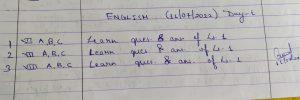 ENGLISH (11/07/2022) Day-1
1 VII A,B,C Learn ques & ans. of L. 1
2 VII A,B,C Learn ques & ans. of L. 1
3 VIII A,B,C Learn ques & ans. of L. 1